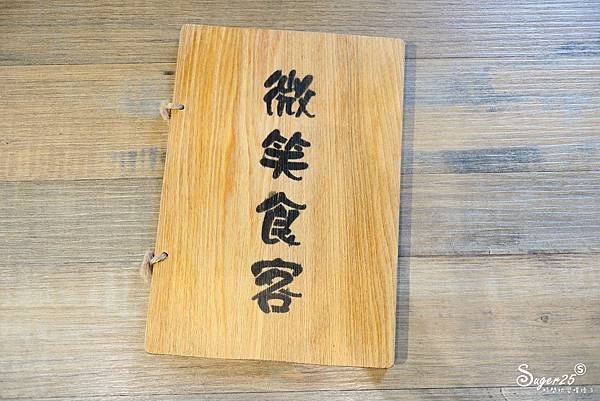 微笑食客
Suger25